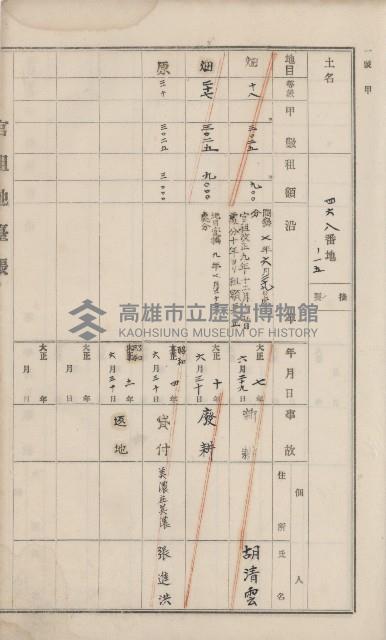 一號甲
土名
四六八番地ノ一五
摘要
地目 等則 甲數 租額 沿革
畑 十八 三〇二五 九〇〇
開墾 七年六月
官租改正九年十二月
十年ヨリ租額
畑 二七 三〇二五 九〇〇〇
地目變換 九年
原 三十 三〇二五 三〇〇〇
年月日 事故 住所 氏名
個人
大正七年六月二十九日 胡清雲
大正十年六月三十日 廢耕
昭和四年六月三十日 貸付 美濃庄美濃 張進洪
昭和六年六月三十日 返地
大正 年 月 日
大正 年 月 日
官租地臺帳
高雄市立歷史博物館
KAOHSIUNG MUSEUM OF HISTORY